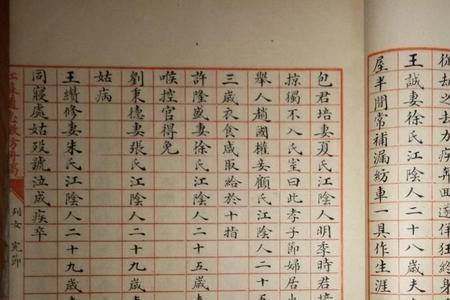 之去力疾奔回遂佯狂終身
王誠妻徐氏江陰人二十八歲夫
屋半間常補漏紡車一具作生涯
包君培妻夏氏江陰人明季時君培
掠獨不入氏室曰此孝子節婦居
舉人趙國權妾顧氏江陰人二十
三歲衣食咸取給於十指
許隆盛妻氏江陰人二十五歲
喉控官得免
劉秉德妻張氏江陰人二十九歲夫
姑病
王纘修妻朱氏江陰人二十九歲
同寢處姑歿號泣成疾卒
列女 完節